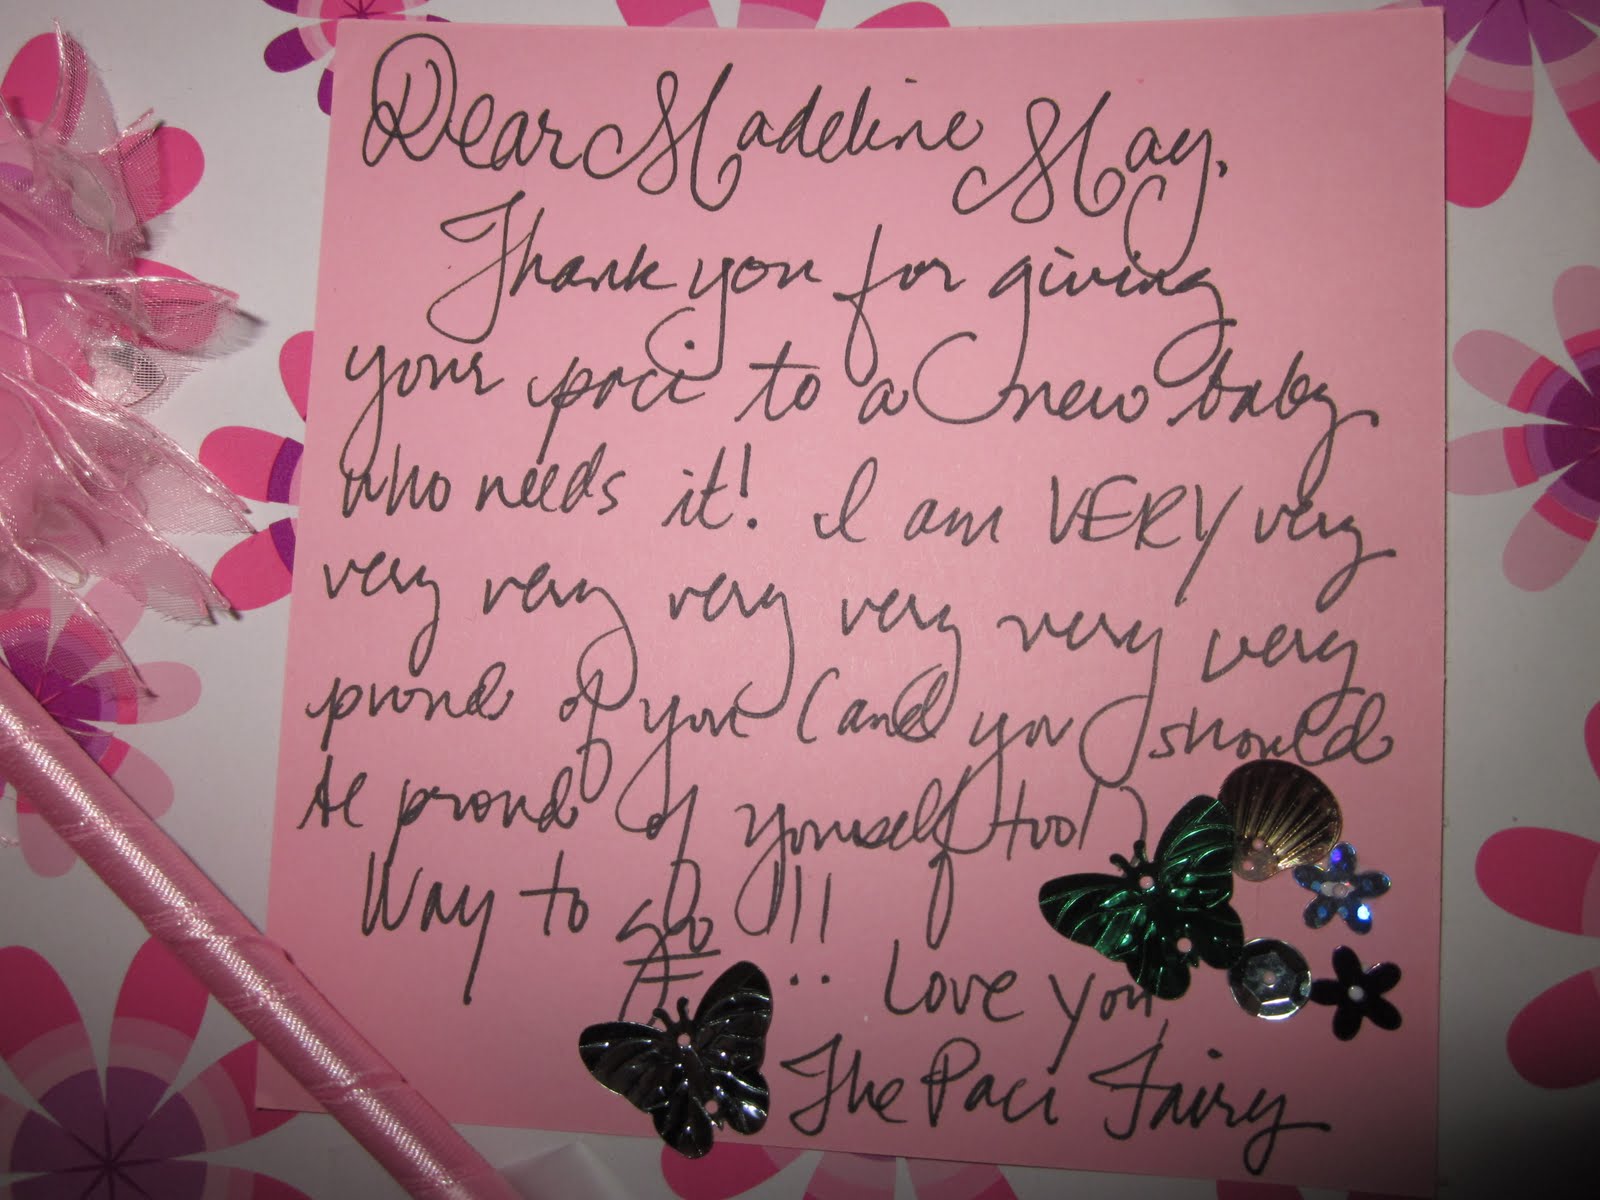 Dear Madeline May,
Thank you for giving
your paci to a new baby
who needs it! I am VERY very
very very very very very very
proud of you (and you should
be proud of yourself too!)
Way to go!!!
Love you,
The Paci Fairy